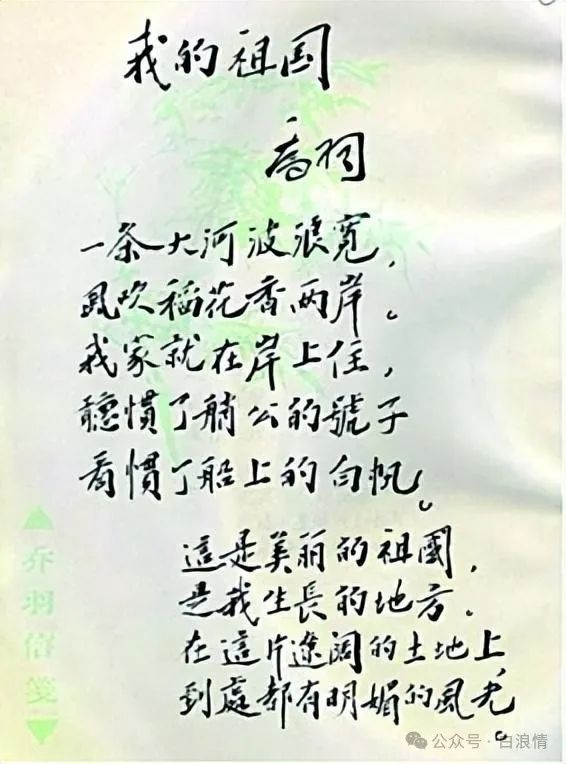 我的祖国
喬羽
一条大河波浪寬，
風吹稻花香两岸。
我家就在岸上住，
聽慣了艄公的號子
看慣了船上的白帆。
這是美丽的祖國，
是我生長的地方，
在這片遼阔的土地上，
到處都有明媚的風光。
乔羽信箋
公众号·白浪情